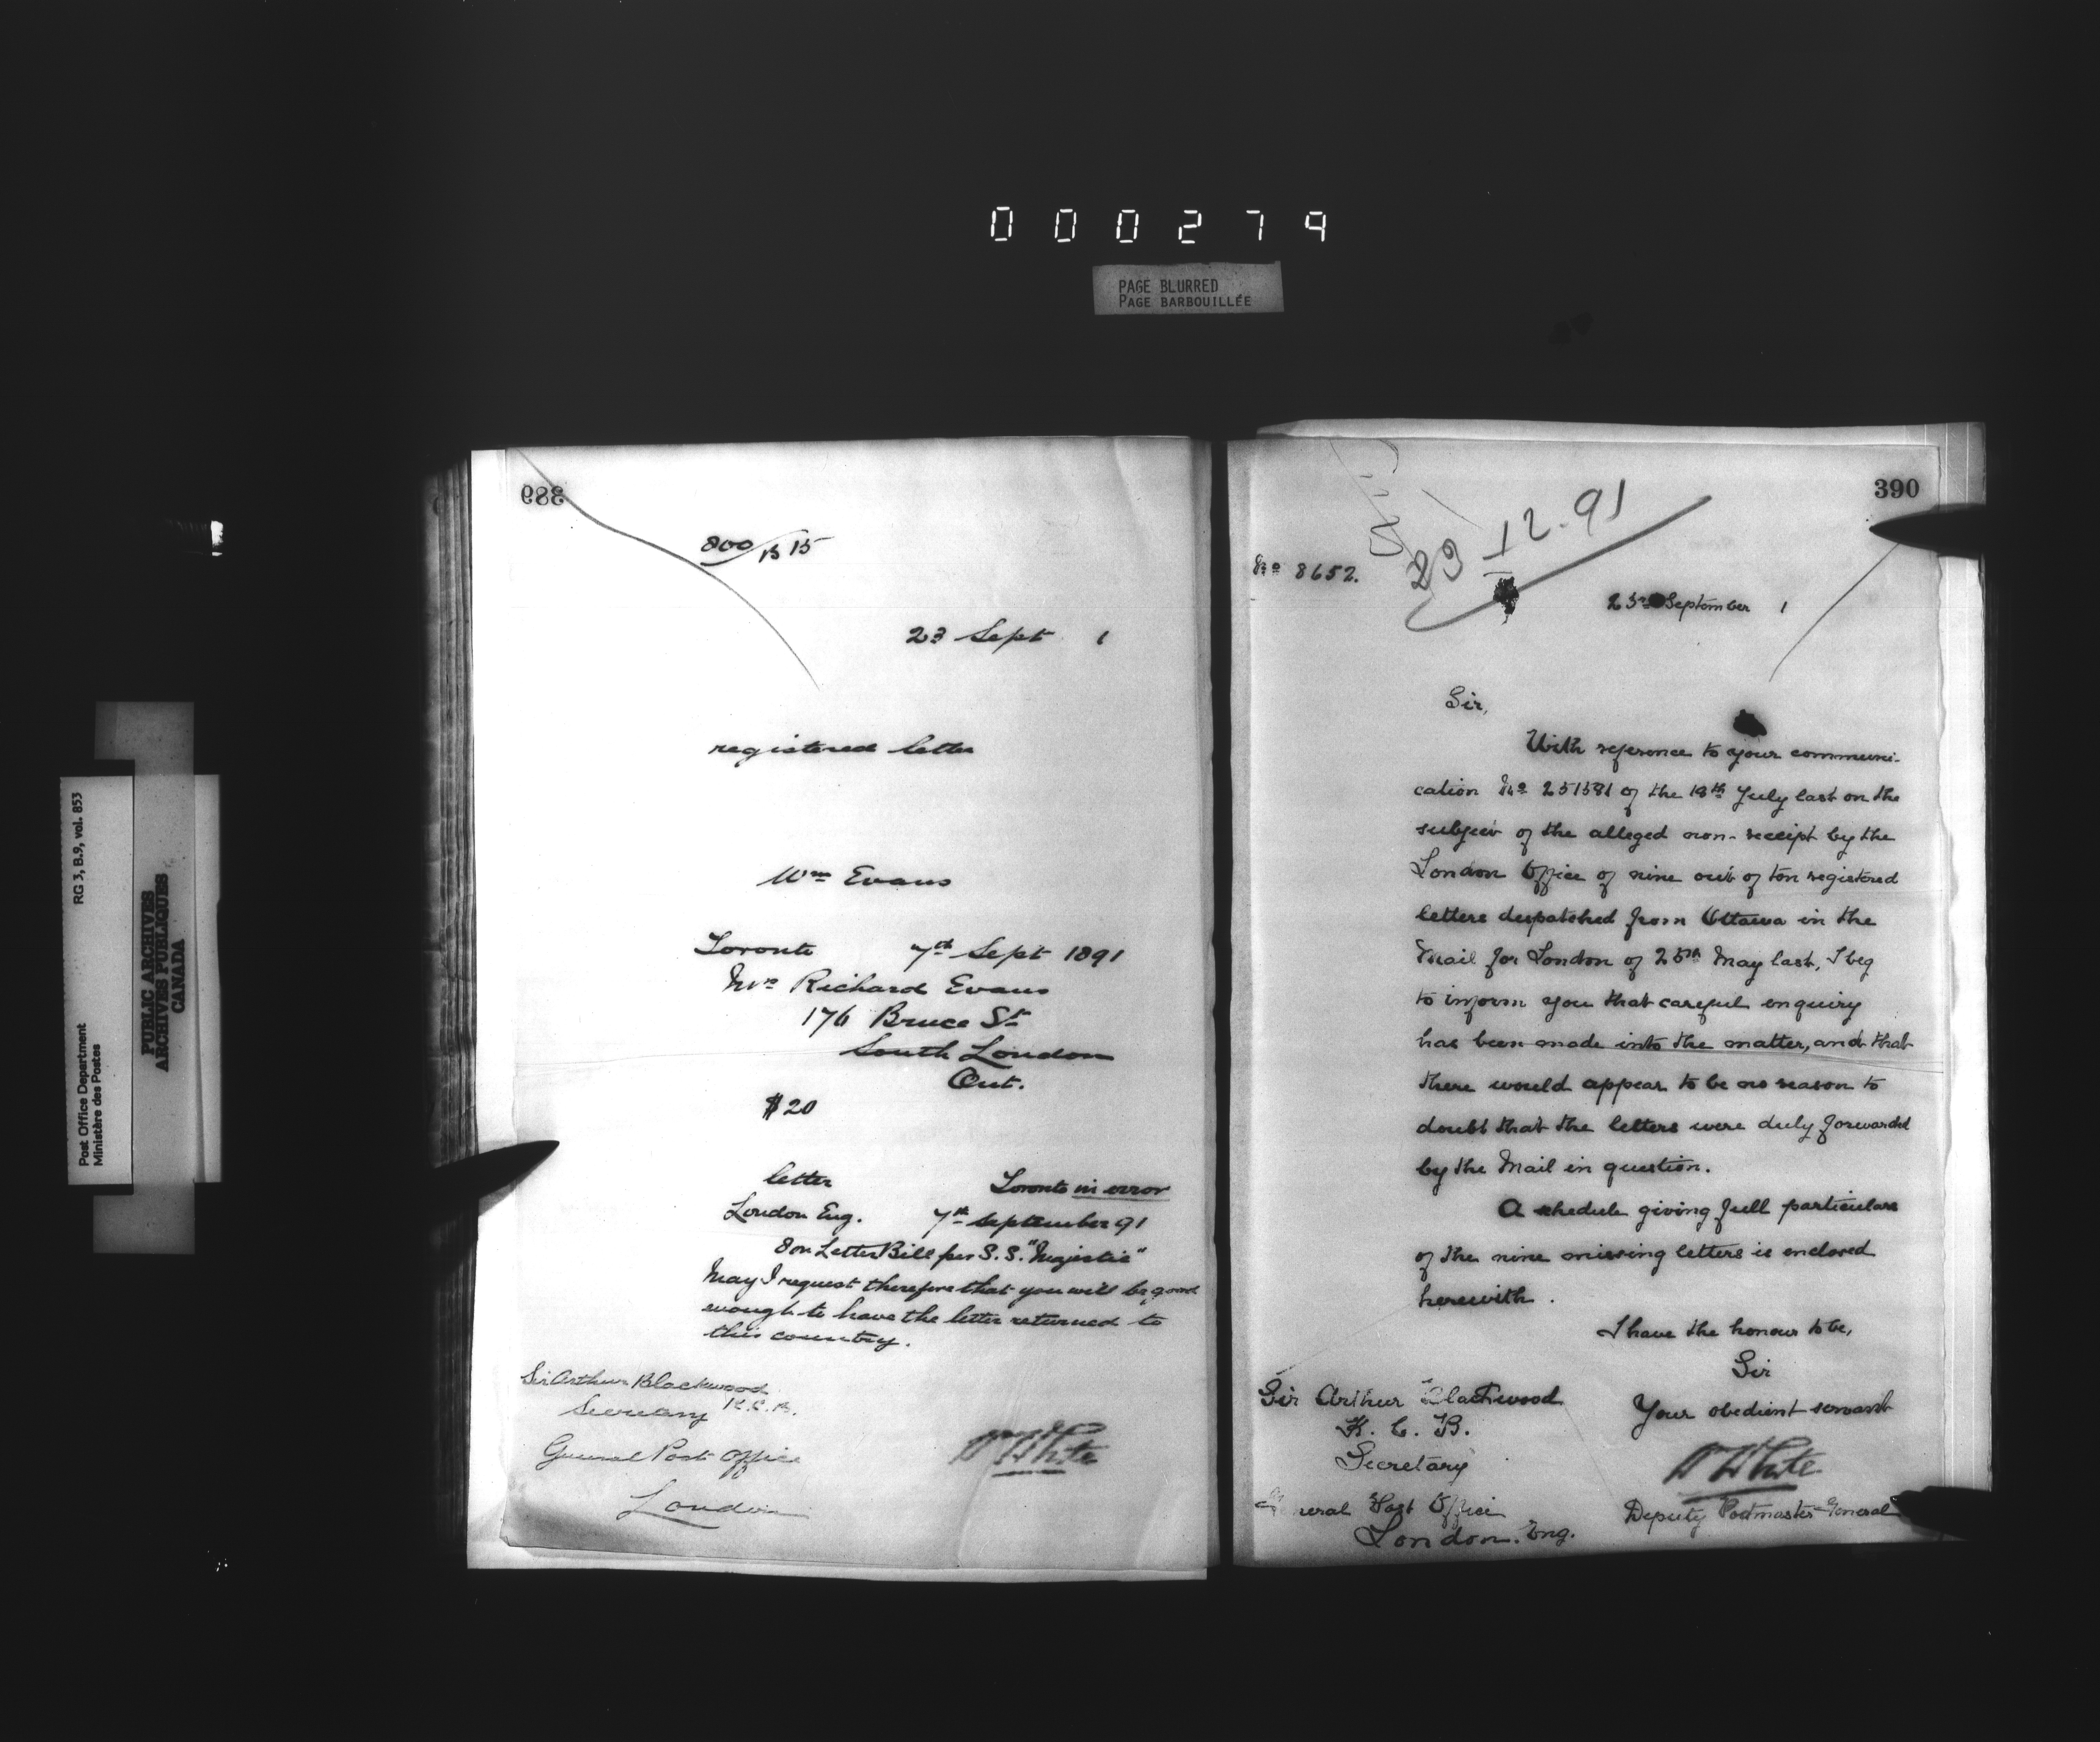 000279
PAGE BLURRED
PAGE BARBOUILLÉE
Post Office Department
Ministère des Postes
RG 3, B.9, vol. 853
PUBLIC ARCHIVES
ARCHIVES PUBLIQUES
CANADA
389
800/B 15
23 Sept 1
registered letter
Wm Evans
Toronto 7th Sept 1891
Mrs Richard Evans
176 Bruce St
South London
Ont.
$20
letter Toronto in error
London Eng. 7th September 91
8 on Letter Bill per S.S. "Majestic"
May I request therefore that you will be good
enough to have the letter returned to
this country.
Sir Arthur Blackwood
K.C.B.
Secretary
General Post Office
London
W White
390
23-12.91
No 8652.
September 1
Sir,
With reference to your communi-
cation No 251581 of the 18th July last on the
subject of the alleged non-receipt by the
London Office of nine out of ten registered
letters despatched from Ottawa in the
Mail for London of May last, I beg
to inform you that careful enquiry
has been made into the matter, and that
there would appear to be no reason to
doubt that the letters were duly forwarded
by the Mail in question.
A schedule giving full particulars
of the nine missing letters is enclosed
herewith.
I have the honour to be,
Sir
Your obedient servant
W White
Deputy Postmaster General
Sir Arthur Blackwood
K. C. B.
Secretary
General Post Office
London. Eng.